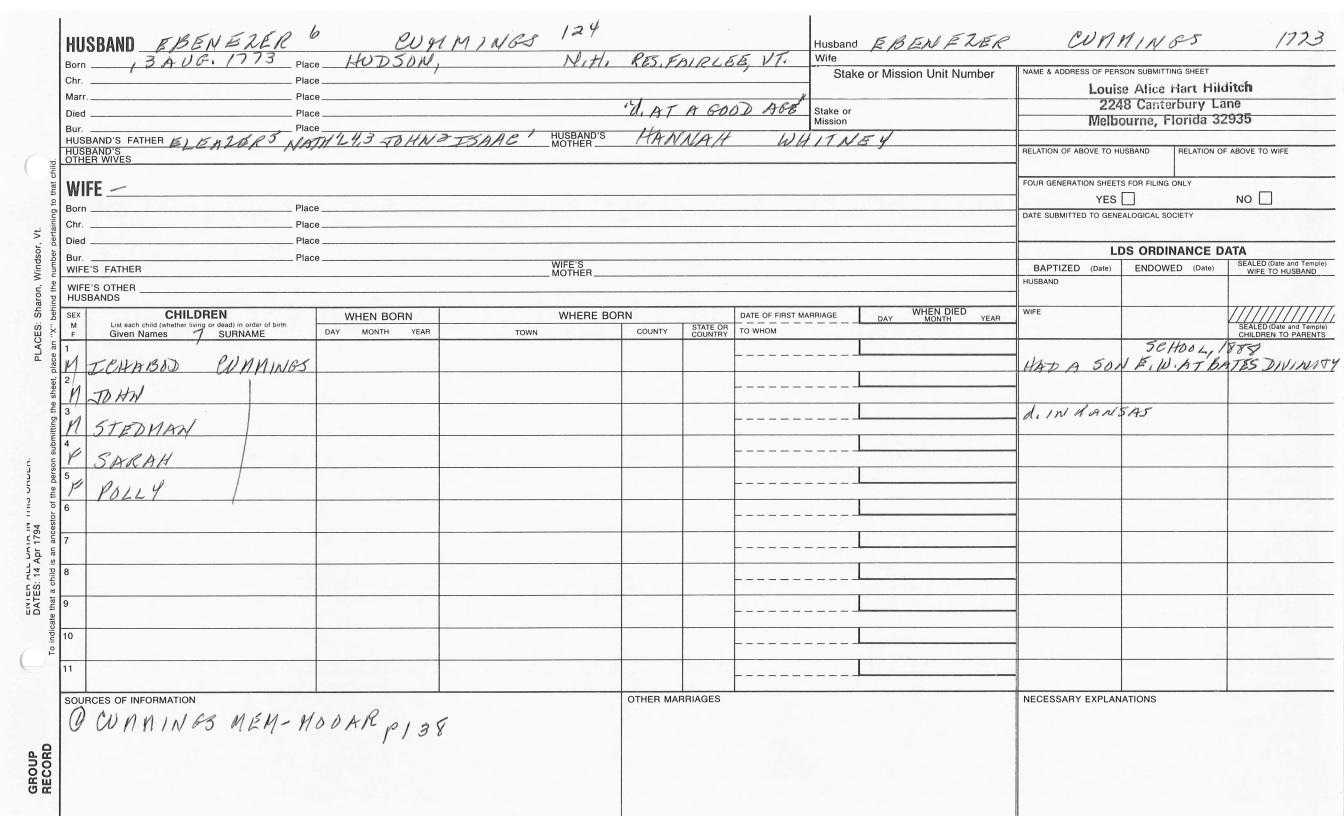 HUSBAND EBENEZER 6 CUMMINGS 124
Husband EBENEZER CUMMINGS 1773
Wife
Born 3 AUG. 1773 Place HUDSON, N.H. RES. FAIRLEE, VT.
Chr. Place
Marr. Place
Died Place "d. AT A GOOD AGE"
Bur. Place
HUSBAND'S FATHER ELEAZER5 NATH'L4,3 JOHN2 ISAAC1 HUSBAND'S MOTHER HANNAH WHITNEY
HUSBAND'S OTHER WIVES
Stake or Mission Unit Number
Stake or Mission
NAME & ADDRESS OF PERSON SUBMITTING SHEET
Louise Alice Hart Hilditch
2248 Canterbury Lane
Melbourne, Florida 32935
RELATION OF ABOVE TO HUSBAND RELATION OF ABOVE TO WIFE
FOUR GENERATION SHEETS FOR FILING ONLY
YES NO
DATE SUBMITTED TO GENEALOGICAL SOCIETY
WIFE —
Born Place
Chr. Place
Died Place
Bur. Place
WIFE'S FATHER WIFE'S MOTHER
WIFE'S OTHER HUSBANDS
LDS ORDINANCE DATA
BAPTIZED (Date) ENDOWED (Date) SEALED (Date and Temple) WIFE TO HUSBAND
HUSBAND
WIFE
SEALED (Date and Temple) CHILDREN TO PARENTS
SEX M F
CHILDREN
List each child (whether living or dead) in order of birth
Given Names 7 SURNAME
WHEN BORN
DAY MONTH YEAR
WHERE BORN
TOWN COUNTY STATE OR COUNTRY
DATE OF FIRST MARRIAGE
TO WHOM
WHEN DIED
DAY MONTH YEAR
1 M ICHABOD CUMMINGS HAD A SON E.W. AT BATES DIVINITY SCHOOL, 1888
2 M JOHN
3 M STEDMAN d. IN KANSAS
4 F SARAH
5 F POLLY
6
7
8
9
10
11
SOURCES OF INFORMATION
① CUMMINGS MEM-MOOAR p138
OTHER MARRIAGES
NECESSARY EXPLANATIONS
PLACES: Sharon, Windsor, Vt.
ENTER ALL DATA IN THIS ORDER:
DATES: 14 Apr 1794
To indicate that a child is an ancestor of the person submitting the sheet, place an "X" behind the number pertaining to that child.
GROUP RECORD